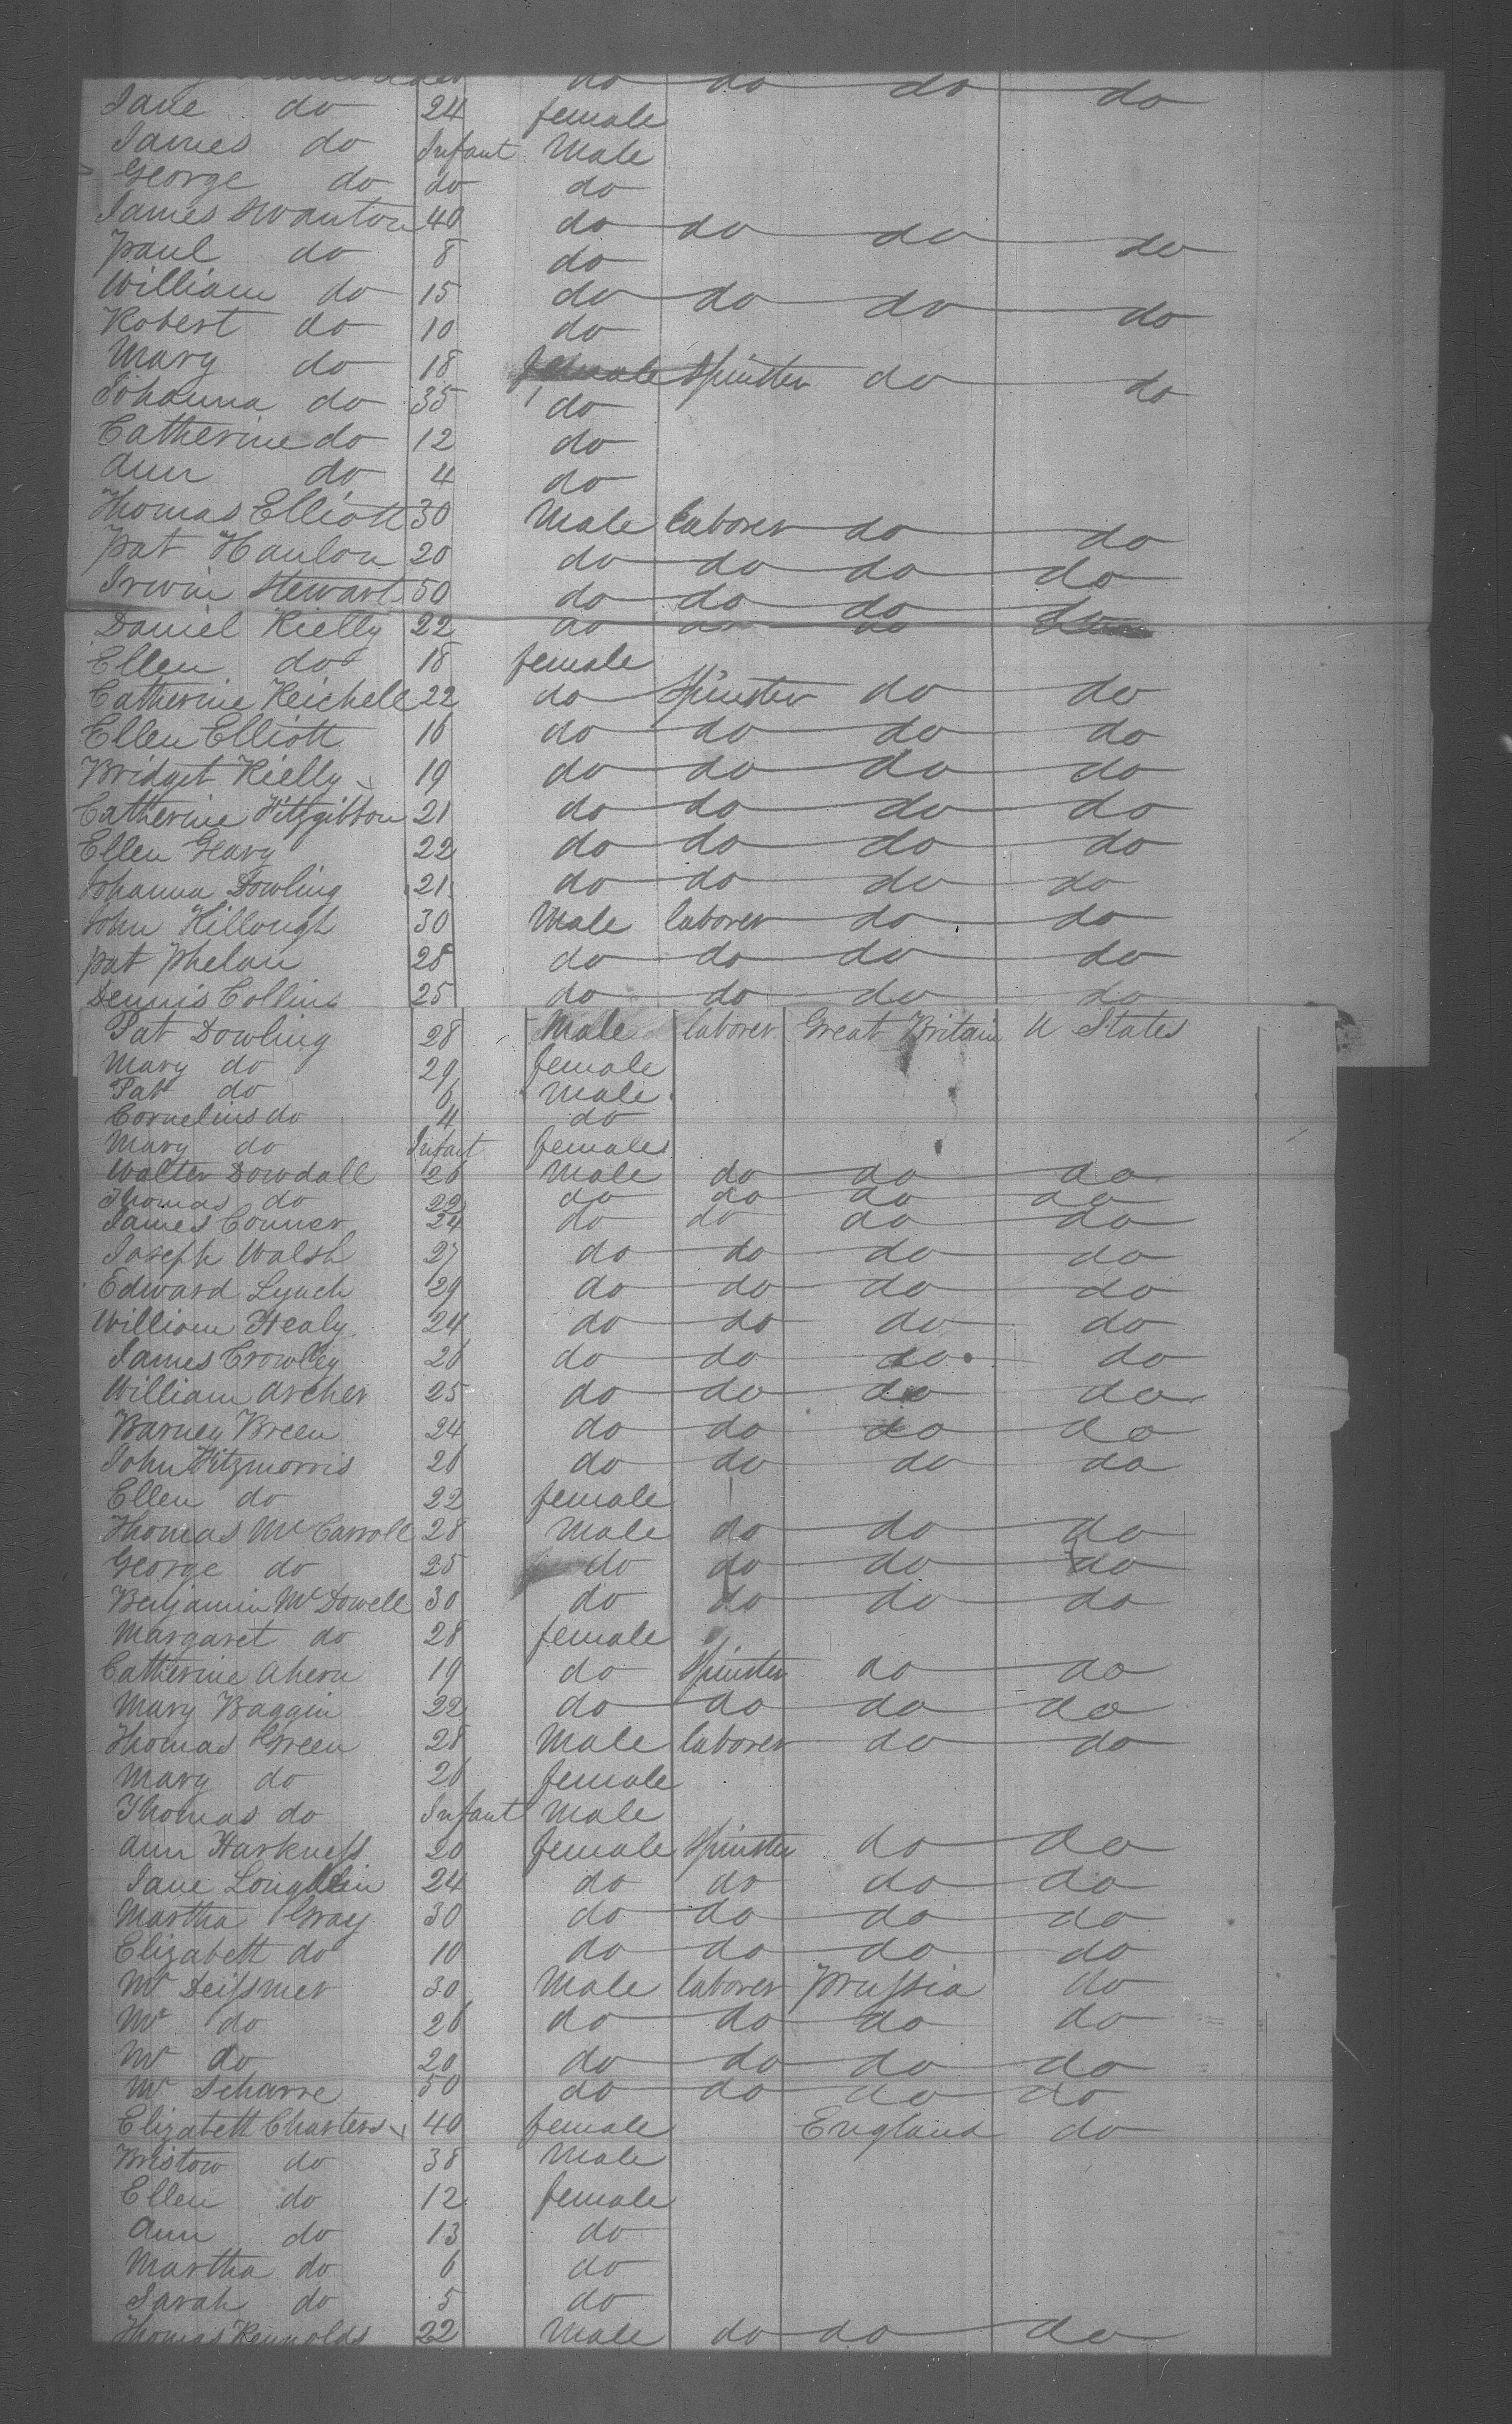 do do do do
Jane do 24 female
James do Infant Male
George do do do
James Swanton 40 do do do do
Paul do 8 do
William do 15 do do do do
Robert do 10 do
Mary do 18 female Spinster do do
Johanna do 35 do
Catherine do 12 do
Ann do 4 do
Thomas Elliott 30 Male laborer do do
Pat Hanlon 20 do do do do
Irwin Stewart 50 do do do do
Daniel Rielly 22 do do do
Ellen do 18 female
Catherine 22 do Spinster do do
Ellen Elliott 16 do do do do
Bridget Rielly 19 do do do do
Catherine Fitzgibbon 21 do do do do
Ellen Geary 22 do do do do
Johanna Dowling 21 do do do do
John Killough 30 Male laborer do do
Pat Phelan 28 do do do do
Dennis Collins 25 do do do do
Pat Dowling 28 Male laborer Great Britain U States
Mary do 29 female
Pat do 6 Male
Cornelius do 4 do
Mary do Infant females
Walter Dowdall 26 Male do do do
Thomas do 22 do do do do
James Conner 24 do do do do
Joseph Walsh 27 do do do do
Edward Lynch 29 do do do do
William Healy 24 do do do do
James Crowley 26 do do do do
William Archer 25 do do do do
Barney Breen 24 do do do do
John Fitzmorris 26 do do do do
Ellen do 22 female
Thomas McCarroll 28 Male do do do
George do 25 do do do do
Benjamin McDowell 30 do do do do
Margaret do 28 female
Catherine Ahern 19 do Spinster do do
Mary Baggin 22 do do do do
Thomas Green 28 Male laborer do do
Mary do 26 female
Thomas do Infant Male
Ann Harkness 20 female Spinster do do
Jane Loughlin 24 do do do do
Martha Gray 30 do do do do
Elizabett do 10 do do do do
Mr Deissmer 30 Male laborer Prussia do
Mr do 26 do do do do
Mr do 20 do do do do
Mr Scharre 50 do do do do
Elizabett Charters 40 female England do
Bristow do 38 Male
Ellen do 12 female
Ann do 13 do
Martha do 6 do
Sarah do 5 do
Thomas Reynolds 22 Male do do do